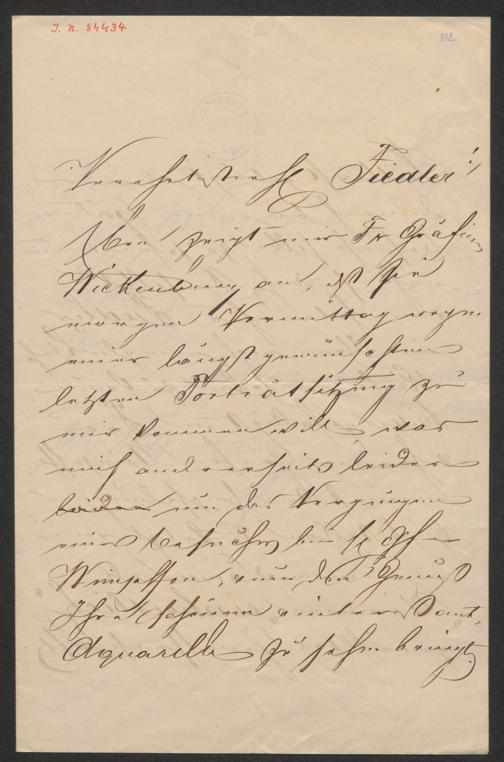 J. N. 84434
Verehrtester H Fiedler!
Eben zeigt mir Fr Gräfin
Wickenburg an, daß sie
morgen Vormittag wegen
einer längst gewünschten
letzten Porträtsitzung zu
mir kommen will, was
mich andrerseits leider
um das Vergnügen
eines Besuches bei H Gfn
Wimpffen, und den Genuß
Ihre schönen
Aquarelle zu sehen bringt.